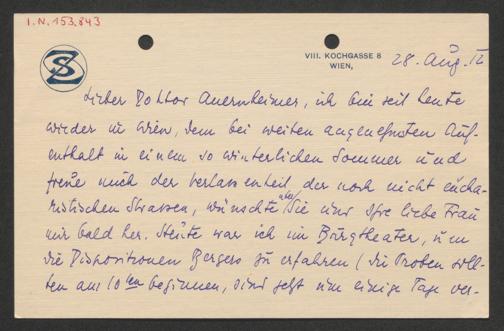 I.N. 153.843
SZ
VIII. KOCHGASSE 8
WIEN, 28. Aug. 12
Lieber Doktor Auernheimer, ich bin seit heute
wieder in Wien, dem bei weiten angenehmsten Auf-
enthalt in einem so winterlichen Sommer und
freue mich der Verlassenheit der noch nicht eucha-
ristischen Strassen, wünschte aber Sie und Ihre liebe Frau
mir bald her. Heute war ich im Burgtheater, um
die Dispositionen Bergers zu erfahren (die Proben soll-
ten am 10ten beginnen, sind jetzt um einige Tage ver-